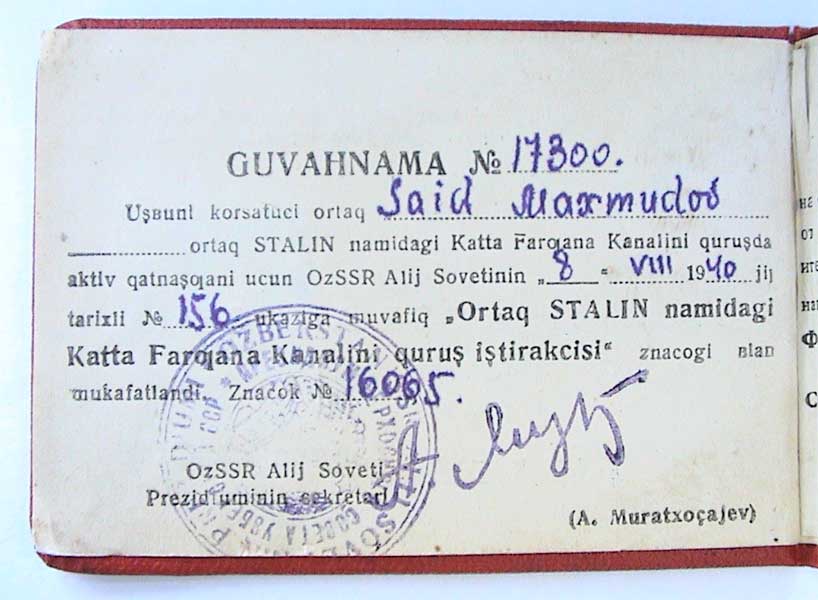 GUVAHNAMA № 17300.
Uşʙuni korsatuci ortaq Said Maxmudov
ortaq STALIN namidagi Katta Farƣana Kanalini quruşda
aktiv qatnaşqani ucun OzSSR Alij Sovetinin „8“ VIII 1940 jij
tarixli № 156 ukaziga muvafiq „Ortaq STALIN namidagi
Katta Farƣana Kanalini quruş iştirakcisi“ znacogi ʙilan
mukafatlandi. Znacok № 16065.
OzSSR Alij Soveti
Prezidiuminin sekretari
(A. Muratxoçajev)